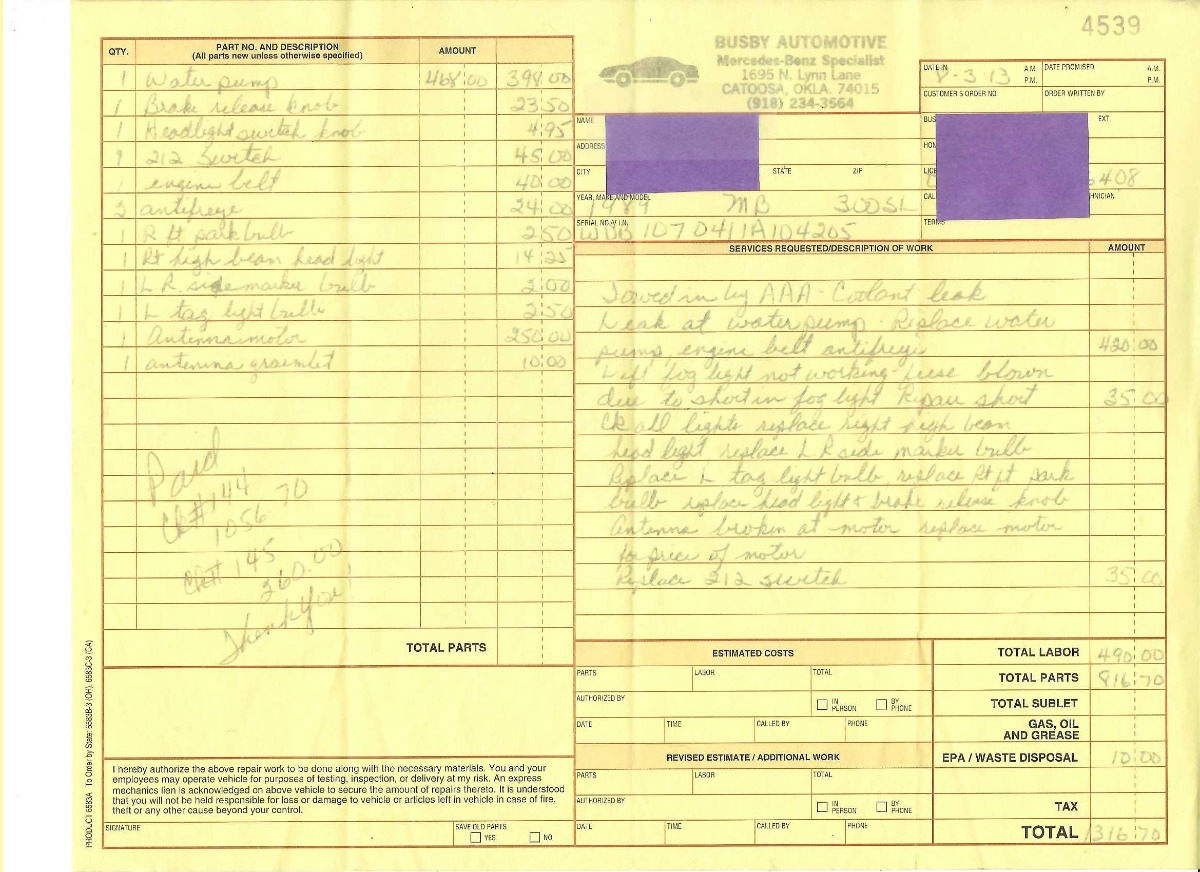 4539
BUSBY AUTOMOTIVE
Mercedes-Benz Specialist
1695 N. Lynn Lane
CATOOSA, OKLA. 74015
(918) 234-3564
DATE IN -3-13 A.M. P.M. DATE PROMISED A.M. P.M.
CUSTOMER'S ORDER NO. ORDER WRITTEN BY
NAME BUS EXT.
ADDRESS HOM
CITY STATE ZIP LICE 6408
YEAR, MAKE AND MODEL 1989 MB 300SL CAL HNICIAN
SERIAL NO./V.I.N. WDB1070411A104205 TERMS
QTY. PART NO. AND DESCRIPTION (All parts new unless otherwise specified) AMOUNT
1 Water pump 468 00 398 00
1 Brake release knob 23 50
1 Headlight switch knob 4 95
1 212 Switch 45 00
1 engine belt 40 00
antifreze 24 00
1 R ft park bulb 2 50
1 Rt high beam head light 14 25
1 L R side marker bulb 2 00
1 L tag light bulb 2 50
1 Antenna motor 250 00
1 antenna 10 00
Paid
CK#144
1056 70
CK# 145
260.00
Thank You!
TOTAL PARTS
SERVICES REQUESTED/DESCRIPTION OF WORK AMOUNT
Towed in by AAA - Coolant leak
Leak at water pump - Replace water
pump, engine belt antifreze 420 00
Left fog light not working - fuse blown
due to short in fog light Repair short 35 00
Ck all lights replace right high beam
head light, replace L R side marker bulb
Replace L tag light bulb, replace Rt ft park
bulb replace head light & brake release knob
Antenna broken at motor replace motor
for price of motor
Replace 212 switch 35 00
ESTIMATED COSTS
PARTS LABOR TOTAL
AUTHORIZED BY IN PERSON BY PHONE
DATE TIME CALLED BY PHONE
REVISED ESTIMATE / ADDITIONAL WORK
PARTS LABOR TOTAL
AUTHORIZED BY IN PERSON BY PHONE
DATE TIME CALLED BY PHONE
TOTAL LABOR 490 00
TOTAL PARTS 816 70
TOTAL SUBLET
GAS, OIL AND GREASE
EPA / WASTE DISPOSAL 10 00
TAX
TOTAL 1316 70
I hereby authorize the above repair work to be done along with the necessary materials. You and your
employees may operate vehicle for purposes of testing, inspection, or delivery at my risk. An express
mechanics lien is acknowledged on above vehicle to secure the amount of repairs thereto. It is understood
that you will not be held responsible for loss or damage to vehicle or articles left in vehicle in case of fire,
theft or any other cause beyond your control.
SIGNATURE SAVE OLD PARTS YES NO
PRODUCT 6583A To Order by State: 6583B-3 (OH), 6583C-3 (CA)